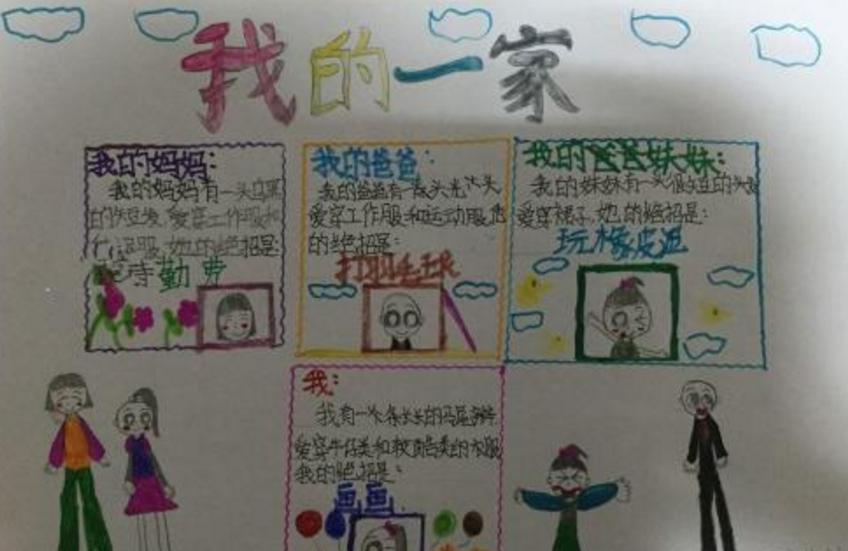 我的一家
我的妈妈:
我的妈妈有一头乌黑
的短发,爱穿工作服和
服,她的绝招是:
勤劳
我的爸爸:
我的爸爸有一个头光头
爱穿工作服和运动服,他
的绝招是:
打羽毛球
我的爸爸妹妹:
我的妹妹有一头很短的头发
爱穿裙子,她的绝招是:
玩橡皮泥
我:
我有一条长长的马尾辫
爱穿牛仔类和较颜色类的衣服
我的绝招是:
画画